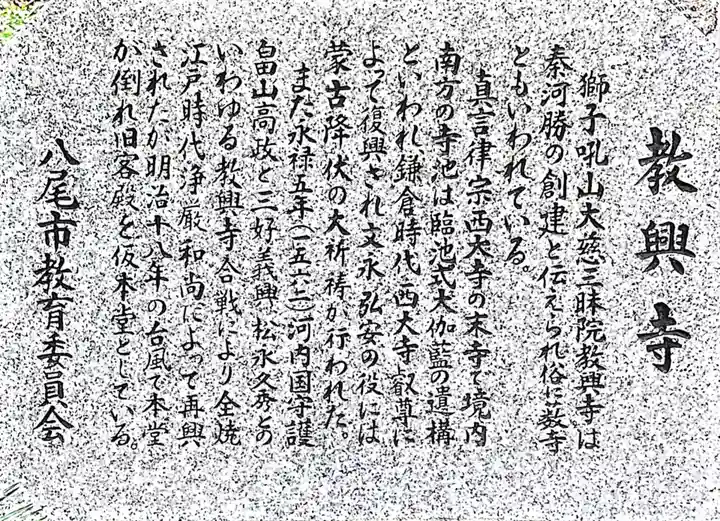 教興寺
獅子吼山大慈三昧院教興寺は
秦河勝の創建と伝えられ俗に教寺
ともいわれている。
真言律宗西大寺の末寺で境内
南方の寺池は臨池式大伽藍の遺構
といわれ鎌倉時代西大寺叡尊に
よって復興され文永弘安の役には
蒙古降伏の大祈祷が行われた。
また永禄五年(一五六二)河内国守護
畠山高政と三好義興松永久秀との
いわゆる教興寺合戦により全焼
江戸時代浄厳和尚によって再興
されたが明治十八年の台風で本堂
が倒れ旧客殿を仮本堂としている。
八尾市教育委員会